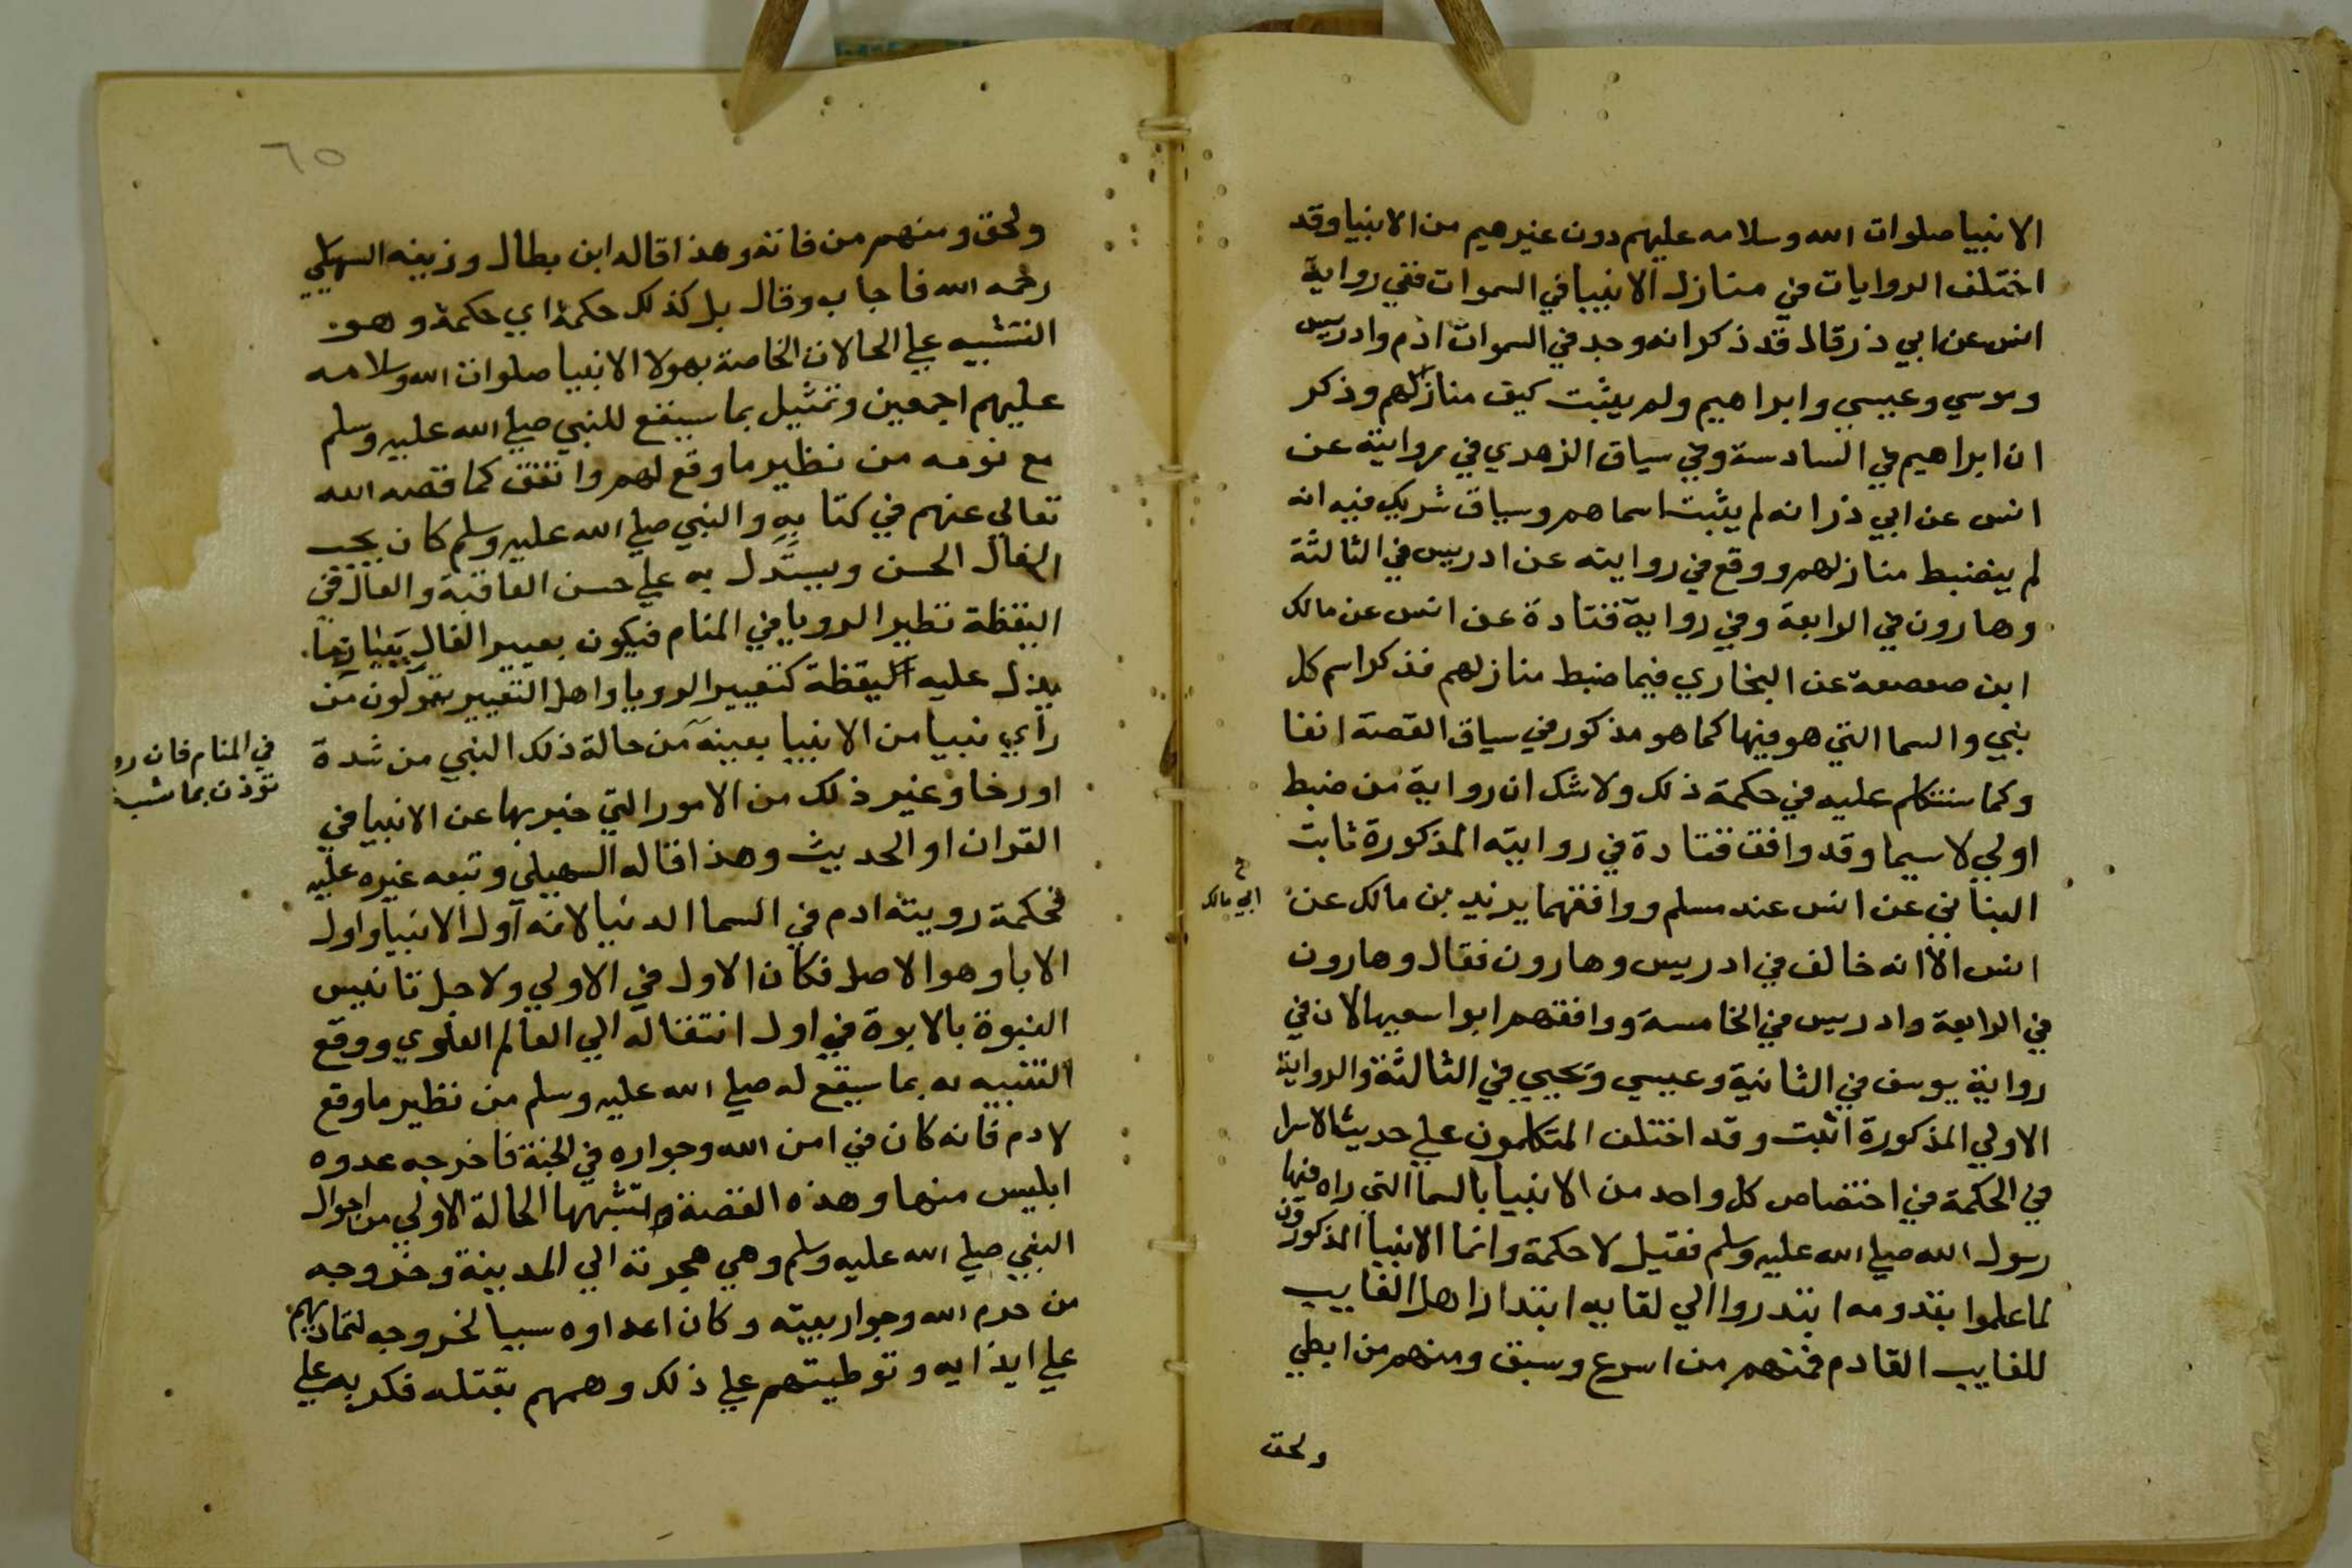 الانبيا صلوات الله وسلامه عليهم دون غيرهيم من الانبيا وقد
اختلف الروايات في منازل الانبيا في السموات ففي رواية
انس عن ابي ذر قال قد ذكر انه وجد في السموات ادم وادريس
وموسي وعيسي وابراهيم ولم يثبت كيف منازلهم وذكر
ان ابراهيم في السادسة وفي سياق الزهدي في روايته عن
انس عن ابي ذر انه لم يثبت اسماهم وسياق شريك فيه انه
لم يضبط منازلهم ووقع في روايته عن ادريس في الثالثة
وهارون في الرابعة وفي رواية قتادة عن انس عن مالك
ابن صعصعة عن البخاري فيما ضبط منازلهم فذكر اسم كل
نبي والسما التي هو فيها كما هو مذكور في سياق القصة انفا
وكما سنتكلم عليه في حكمة ذلك ولا شك ان رواية من ضبط
اولي لا سيما وقد وافق قتادة في روايته المذكورة ثابت
البناني عن انس عند مسلم ووافقهما يزيد بن مالك عن
ابي مالك
انس الا انه خالف في ادريس وهارون فقال وهارون
في الرابعة وادريس في الخامسة ووافقهم ابوا سعيد الا ان في
رواية يوسف في الثانية وعيسي ويحيي في الثالثة والرواية
الاولي المذكورة اثبت وقد اختلف المتكلمون علي حديث الاسرا
في الحكمة في اختصاص كل واحد من الانبيا بالسما التي راه فيها
رسول الله صلي الله عليه وسلم فقيل لا حكمة وانما الانبيا المذكورون
لما علموا بقدومه ابتدروا الي لقايه ابتدار اهل الغايب
للغايب القادم فمنهم من اسرع وسبق ومنهم من ابطي
ولحق
٦٥
ولحق ومنهم من فاته وهذا قاله ابن بطال وزيفه السهيلي
رحمه الله فاجاب وقال بل كذلك حكمة اي حكمة وهو
التنبيه علي الحالات الخاصة بهولا الانبيا صلوات الله وسلامه
عليهم اجمعين وتمثيل بما سيقع للنبي صلي الله عليه وسلم
مع قومه من نظير ما وقع لهم واتفق كما قصه الله
تعالي عنهم في كتابه والنبي صلي الله عليه وسلم كان يحب
الفال الحسن ويستدل به علي حسن العاقبة والفال في
اليقظة نظير الرويا في المنام فيكون بعبير الفال
يدل عليه اليقظة كتعبير الرويا واهل التعبير يقولون من
راي نبيا من الانبيا بعينه من حالة ذلك النبي من شدة
في المنام فان رو
تؤذن بما شب
او رخا وغير ذلك من الامور التي خبر بها عن الانبيا في
القران او الحديث وهذا قاله السهيلي وتبعه غيره عليه
فحكمة رويته ادم في السما الدنيا لانه اول الانبيا واول
الابا وهو الاصل فكان الاول في الاولي ولاجل تانيس
النبوة بالابوة في اول انتقاله الي العالم العلوي ووقع
التنبيه له بما سيقع له صلي الله عليه وسلم من نظير ما وقع
لادم فانه كان في امن الله وجواره في الجنة فاخرجه عدوه
ابليس منها وهذه القصة تشبهها الحالة الاولي من احوال
النبي صلي الله عليه وسلم وهي هجرته الي المدينة وخروجه
من حرم الله وجوار بيته وكان اعداوه سببا لخروجه لتماديهم
علي ايذايه وتوطيتهم علي ذلك وهمهم بقتله فكر به علي